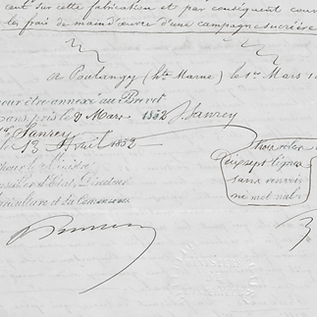 cent sur cette fabrication et par conséquent couvrir
les frais de main d'œuvre d'une campagne sucrière
à Poulangy (hte Marne) le 1er Mars 1
pour être annexé au Brevet
ans pris le 2 Mars 1852 J. Sanrey
Sanrey
le 13 Avril 1852
Pour le Ministre
Conseiller d'Etat, Directeur
Agriculture et du Commerce
trois roles
dix sept lignes
sans renvoi
ni mot nul